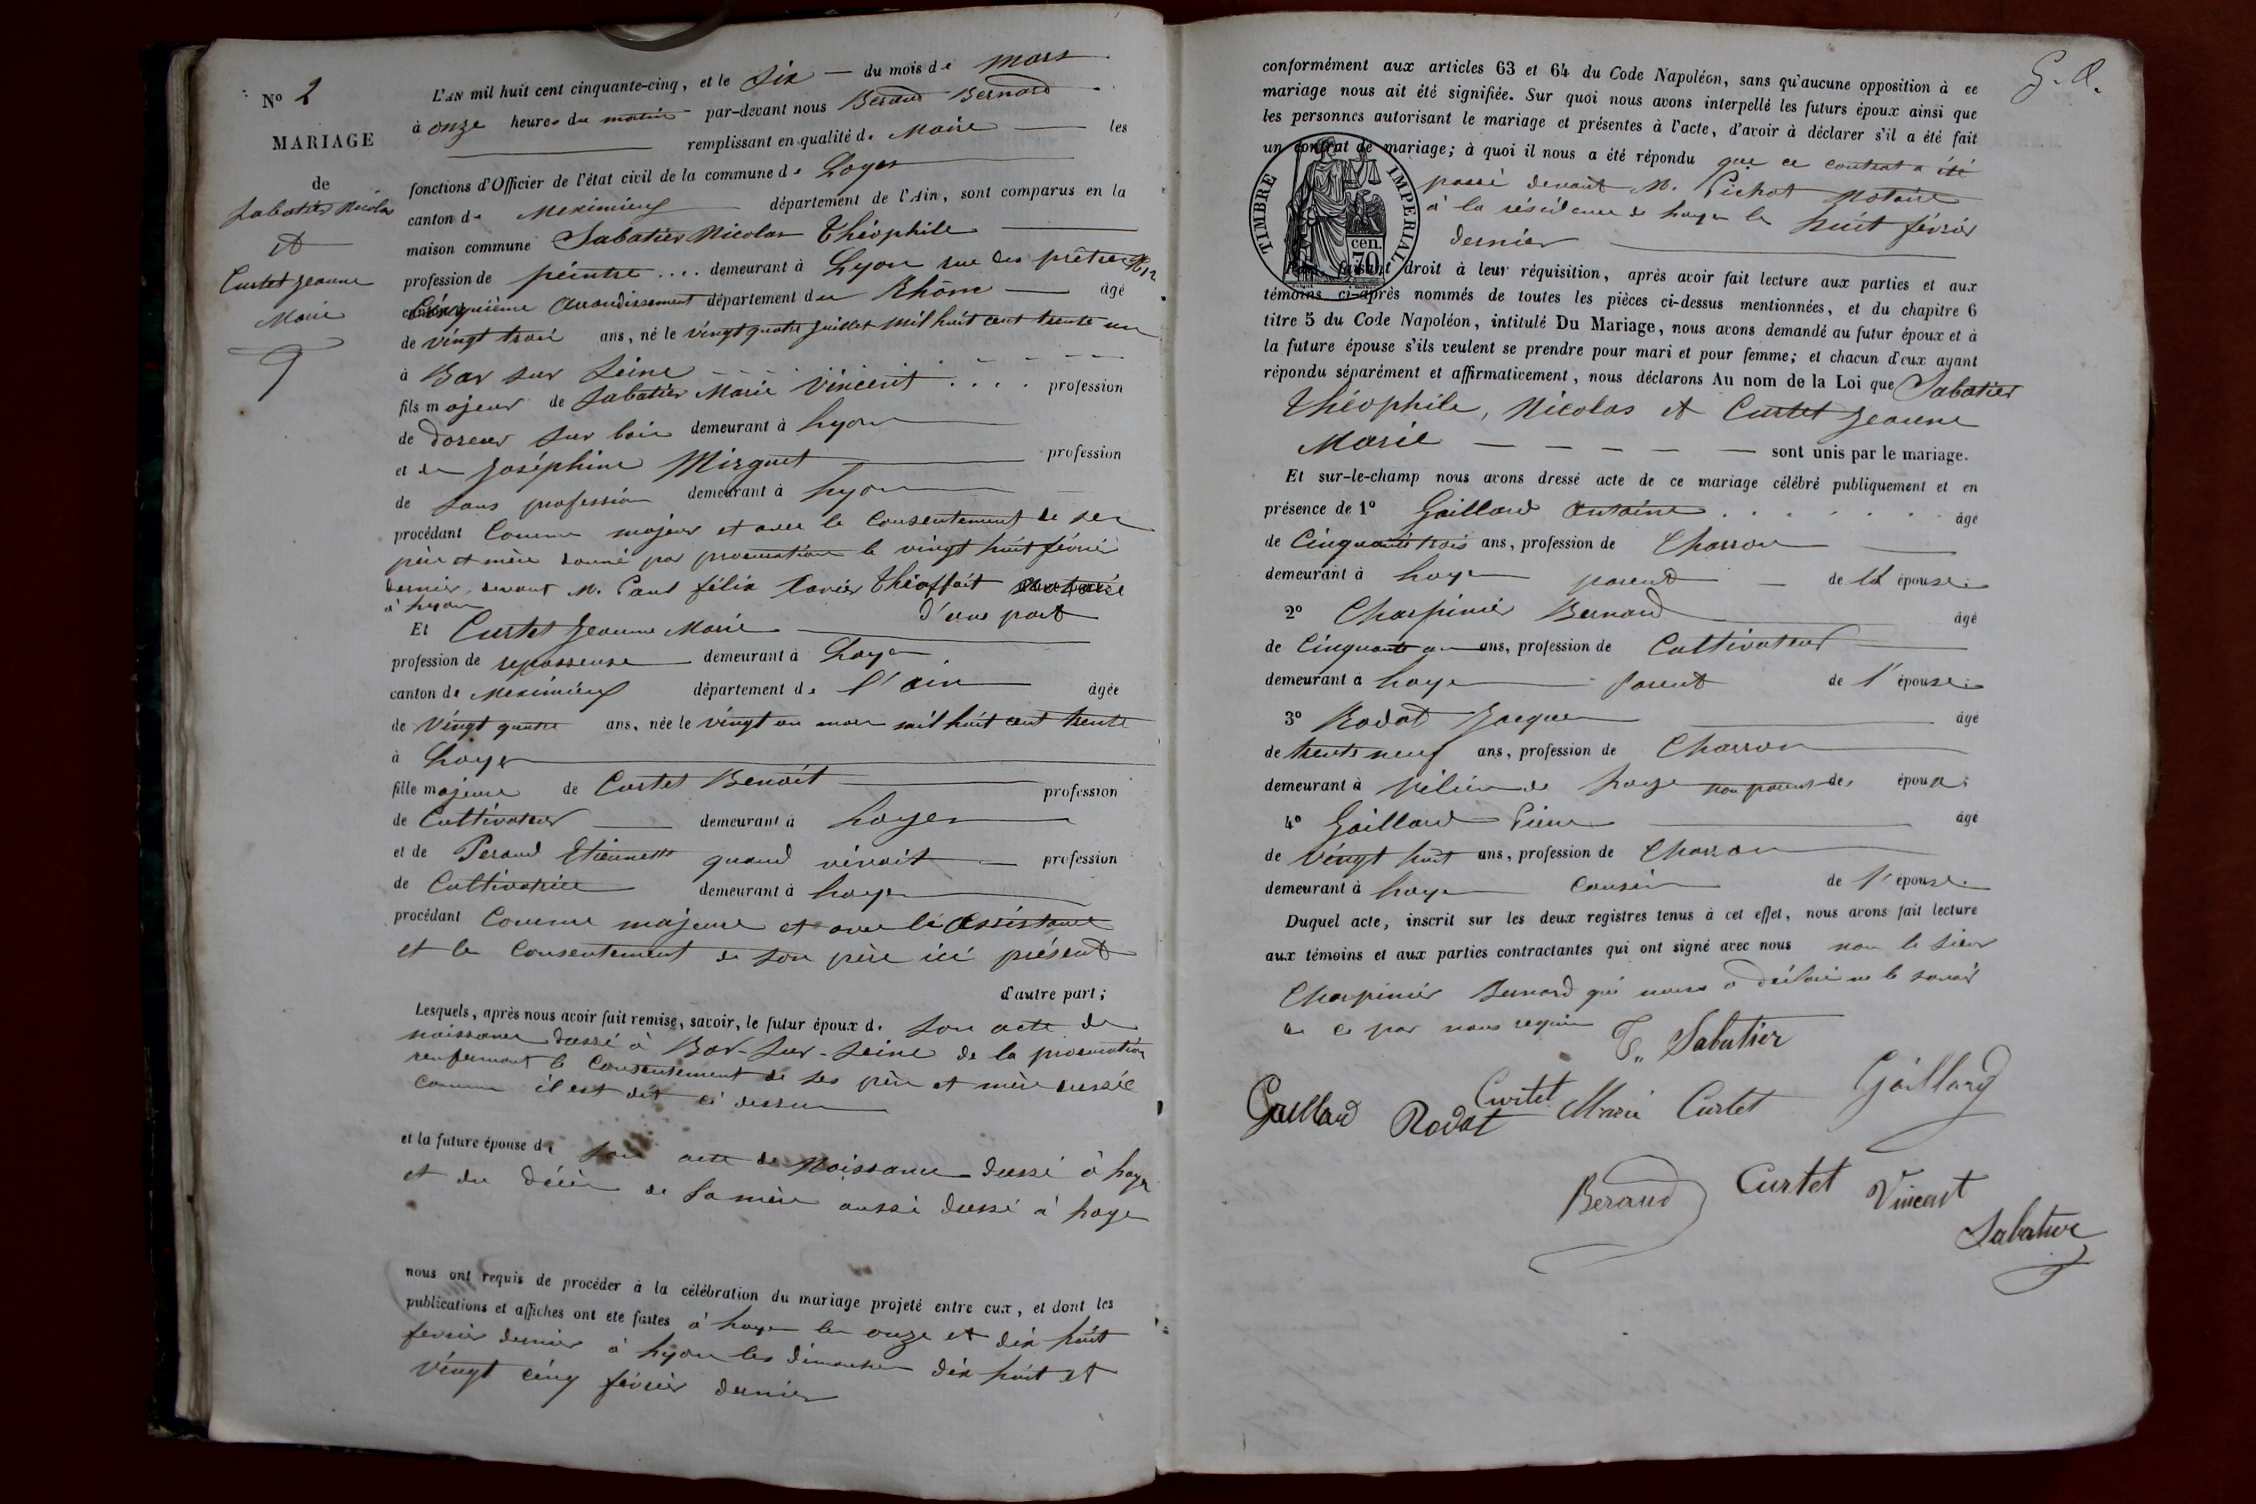 No 2
MARIAGE
de
Sabatier Nicolas
et
Curtet Jeanne
Marie
L'AN mil huit cent cinquante-cinq, et le Six du mois de Mars
à onze heures du matin par-devant nous Beraud Bernard
remplissant en qualité de Maire les
fonctions d'Officier de l'état civil de la commune de Loyes
canton de Meximieux département de l'Ain, sont comparus en la
maison commune Sabatier Nicolas Théophile
profession de peintre .... demeurant à Lyon rue des prêtres No 12
Cinquième Arrondissement département du Rhône âgé
de vingt trois ans, né le vingt quatre juillet mil huit cent trente un
à Bar sur Seine
fils majeur de Sabatier Marie Vincent .... profession
de doreur sur bois demeurant à Lyon
et de Joséphine Mirguet profession
de sans profession demeurant à Lyon
procédant Comme majeur et avec le Consentement de ses
père et mère donné par procuration le vingt huit février
dernier, devant M. Paul félix Xavier Théoffait notaire
à Lyon d'une part
Et Curtet Jeanne Marie
profession de repasseuse demeurant à Loyes
canton de Meximieux département de l'ain âgée
de Vingt quatre ans, née le vingt un mars mil huit cent trente
à Loyes
fille majeure de Curtet Benoit profession
de Cultivateur demeurant à Loyes
et de Peraud Etiennette quand vivait profession
de Cultivatrice demeurant à Loyes
procédant Comme majeure et avec l'Assistance
et le Consentement de son père ici présent
d'autre part;
Lesquels, après nous avoir fait remise, savoir, le futur époux de son acte de
naissance dressé à Bar-sur-Seine de la procuration
renfermant le Consentement de ses père et mère dressée
comme il est dit ci dessus
et la future épouse de son acte de Naissance dressé à Loyes
et du décès de sa mère aussi dressé à Loyes
nous ont requis de procéder à la célébration du mariage projeté entre eux, et dont les
publications et affiches ont été faites à Loyes les onze et dix huit
février dernier à Lyon les dimanches dix huit et
Vingt cinq février dernier
conformément aux articles 63 et 64 du Code Napoléon, sans qu'aucune opposition à ce
mariage nous ait été signifiée. Sur quoi nous avons interpellé les futurs époux ainsi que
les personnes autorisant le mariage et présentes à l'acte, d'avoir à déclarer s'il a été fait
un contrat de mariage; à quoi il nous a été répondu que ce contrat a été
passé devant M. Pichot Notaire
à la résidence de Loyes le huit février
dernier
TIMBRE IMPERIAL
cen.
70
faisant droit à leur réquisition, après avoir fait lecture aux parties et aux
témoins ci-après nommés de toutes les pièces ci-dessus mentionnées, et du chapitre 6
titre 5 du Code Napoléon, intitulé Du Mariage, nous avons demandé au futur époux et à
la future épouse s'ils veulent se prendre pour mari et pour femme; et chacun d'eux ayant
répondu séparément et affirmativement, nous déclarons Au nom de la Loi que Sabatier
Théophile, Nicolas et Curtet Jeanne
Marie sont unis par le mariage.
Et sur-le-champ nous avons dressé acte de ce mariage célébré publiquement et en
présence de 1o Gaillard Antoine âgé
de Cinquante trois ans, profession de Charron
demeurant à Loyes parent de la épouse
2o Charpinier Bernard âgé
de Cinquante un ans, profession de Cultivateur
demeurant à Loyes parent de l'épouse
3o Rodat Jacques âgé
de trente neuf ans, profession de Charron
demeurant à Villieu de Loyes non parent des époux
4o Gaillard Pierre âgé
de Vingt huit ans, profession de Charron
demeurant à Loyes Cousin de l'épouse
Duquel acte, inscrit sur les deux registres tenus à cet effet, nous avons fait lecture
aux témoins et aux parties contractantes qui ont signé avec nous non le sieur
Charpinier Bernard qui nous a déclaré ne le savoir
de ce par nous requis T. Sabatier
Gaillard Rodat Curtet Marie Curtet Gaillard
Beraud Curtet Vincent
Sabatier